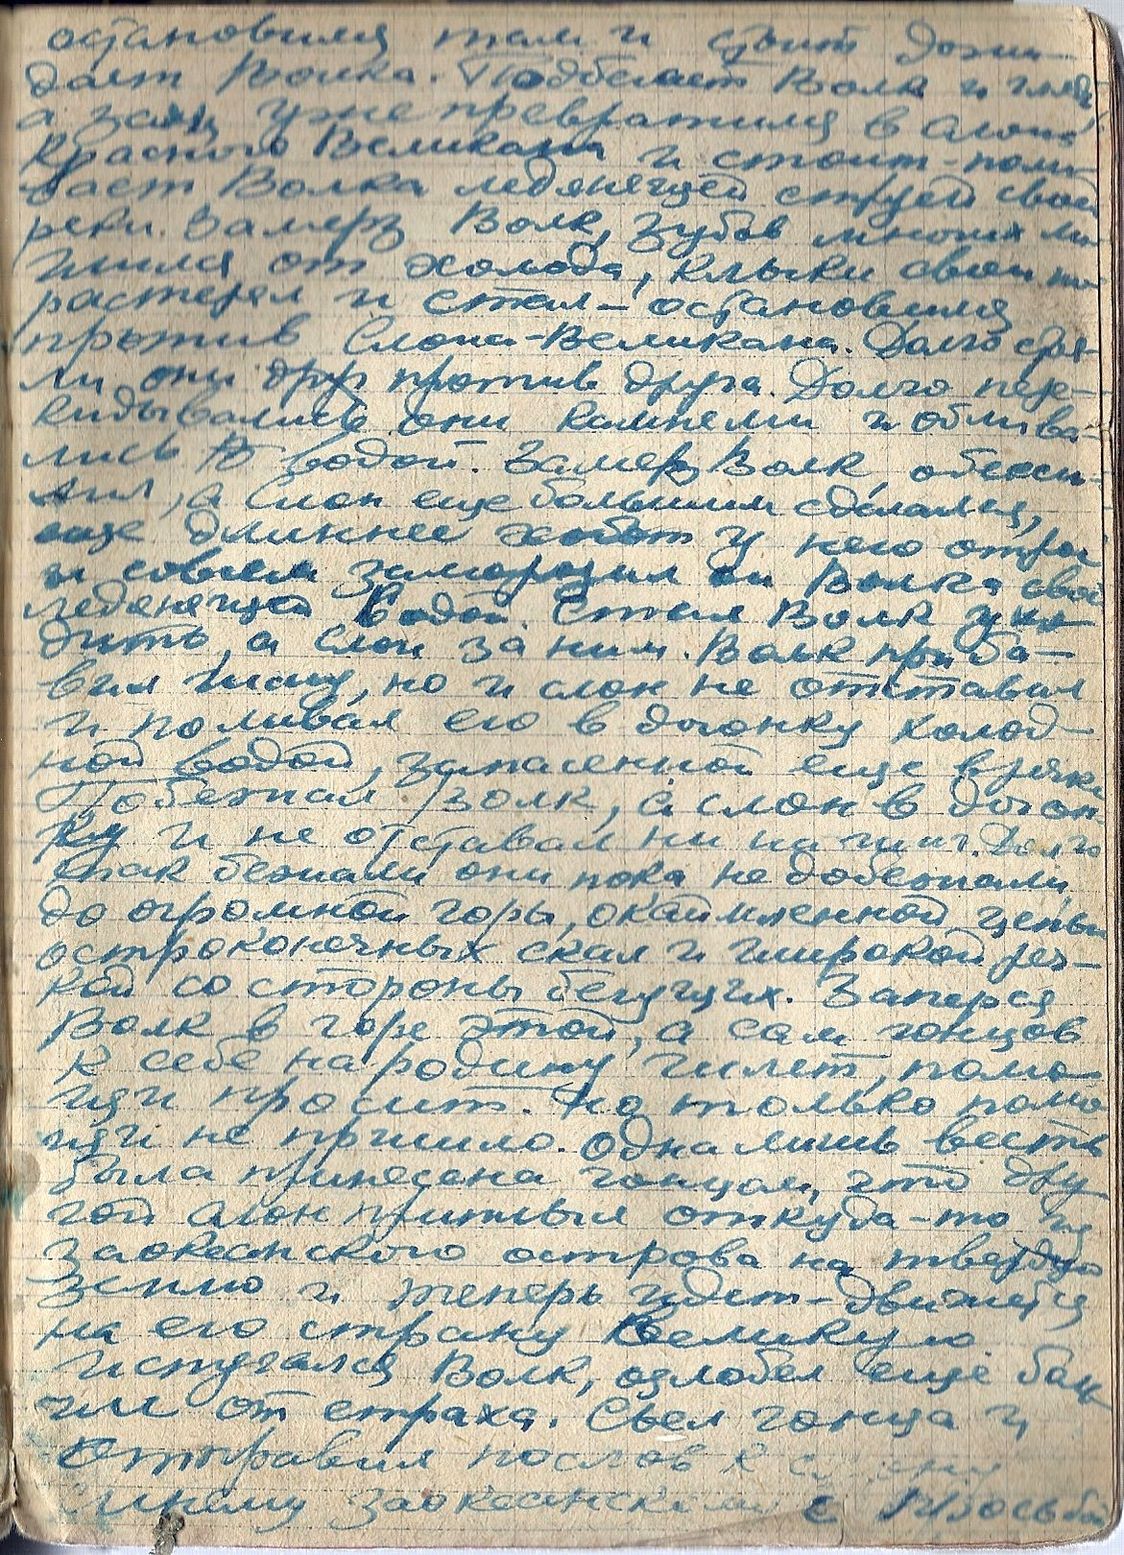 остановился там и стоит дожи-
дает Волка. Подбегает Волк и гляди
а заяц уже превратился в слона
Красного Великана и стоит-поли-
вает Волка леденящей струей свой
реки. Замерз Волк, зубов многих ли-
шился от холода, клыки свои по-
растерял и стал-остановился
против Слона-Великана. Долго стоя-
ли они друг против друга. Долго пере-
кидывались они камнями и облива-
лись водой. Замерз Волк, обесси-
лил, а Слон еще большим сделался,
еще длиннее хобот у него отрос
и совсем заморозил он Волка свой
леденящей водой. Стал Волк ухо-
дить, а Слон за ним. Волк приба-
вил шагу, но и слон не отставал
и поливал его в догонку холод-
ной водой, запасенной еще в реке
Побежал Волк, а слон в догон
ку и не отставал ни на шаг. Долго
так бежали они пока не добежали
до огромной горы, окаймленной цепью
остроконечных скал и широкой реч-
кой со стороны бегущих. Заперся
Волк в горе этой, а сам гонцов
к себе на родину шлет, помо-
щи просит. Но только помо
щи не пришло. Одна лишь весть
была принесена гонцом, что дру
гой слон приплыл откуда-то из
заокеанского острова на твердую
землю и теперь идет-движется
на его страну Великую
испугался Волк, озлобел еще боль
ше от страха. Съел гонца и
отправил послов к слону
иному заокеанскому с просьбой